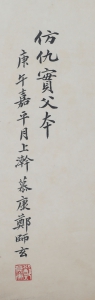 仿仇實父本
庚午嘉平月上澣慕康鄭師玄